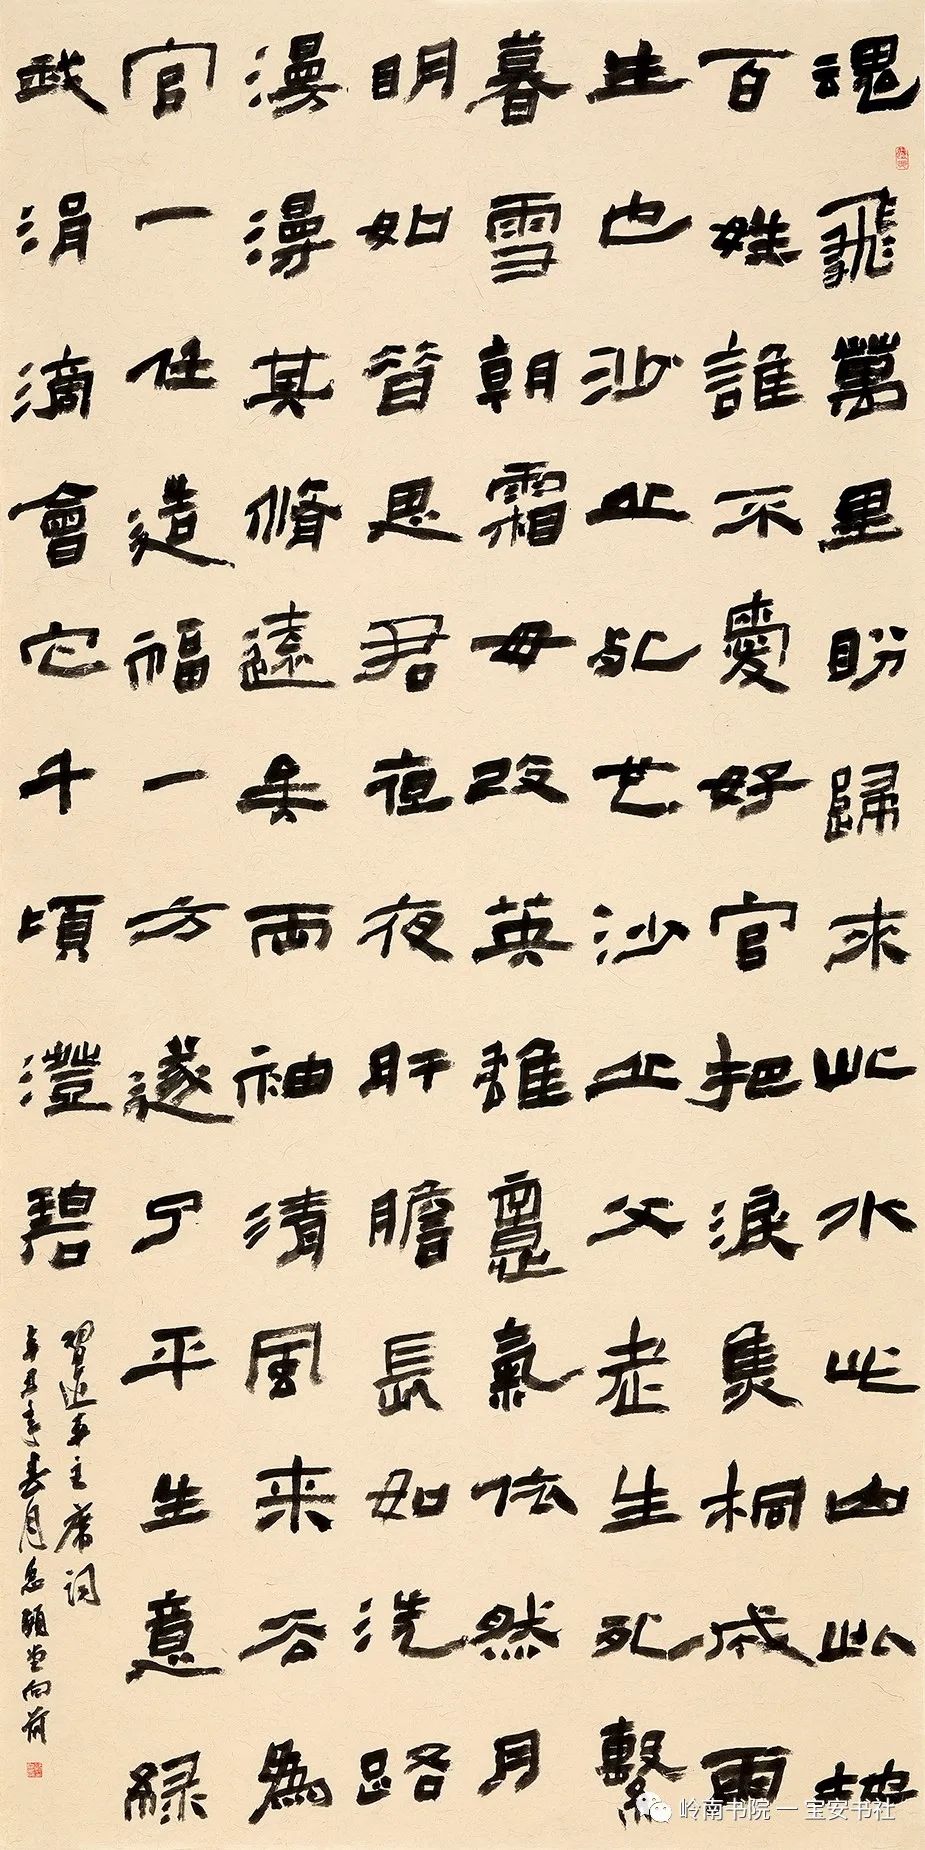 魂飛萬里盼歸來此水此山此地
百姓誰不愛好官把淚焦桐成雨
生也沙丘死也沙丘父老生死繫
暮雪朝霜毋改英雄意氣依然月
明如昔思君夜夜肝膽長如洗路
漫漫其脩遠矣兩袖清風来去為
官一任造福一方遂了平生意綠
我涓滴會它千頃澄碧
習近平主席詞
辛丑年春月
岭南书院一宝安书社